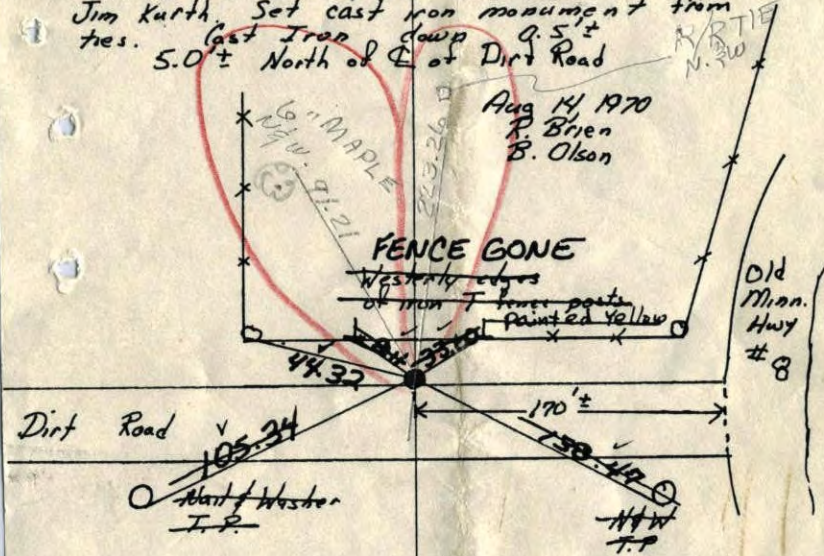 Jim Kurth. Set cast iron monument from
ties. Cast Iron down 0.5'±
5.0'± North of ℄ of Dirt Road
R/R TIE
N.&W
Aug 14 1970
R. Brien
B. Olson
6" MAPLE
N/W. 91.21
223.26
FENCE GONE
Westerly edges
of iron T fence posts
painted yellow
Old
Minn.
Hwy
# 8
44.32
33.
170'±
Dirt Road
105.34
158.47
Nail & Washer
T.P.
N&W
T.P